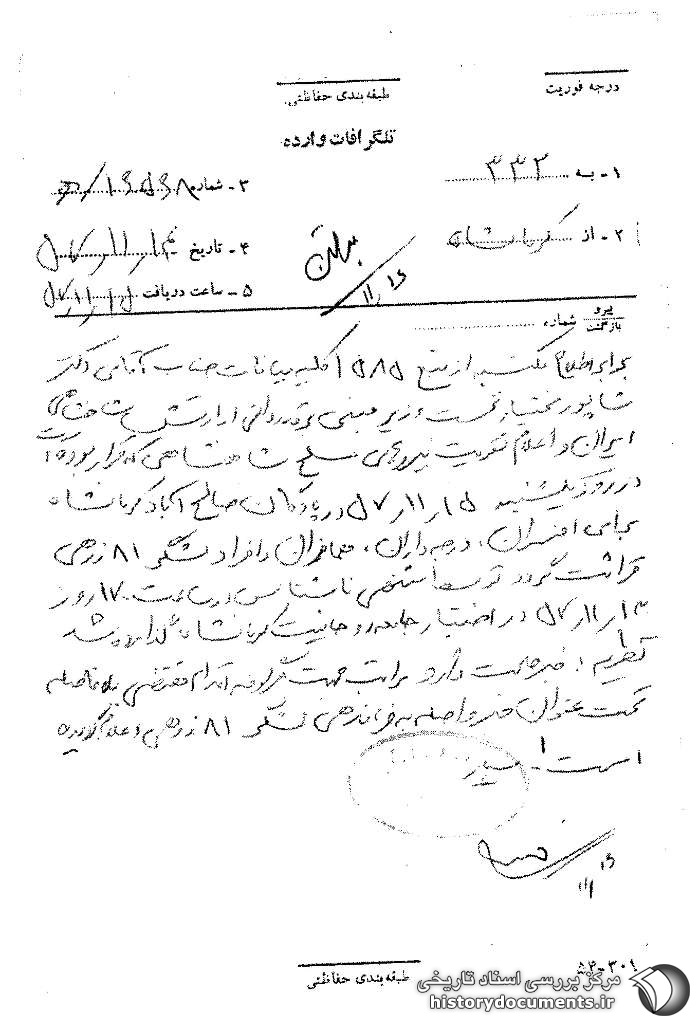 درجه فوریت
طبقه بندی حفاظتی
تلگرافات وارده
۱- به ۳۳۲
۲- از کرمانشاه
۳- شماره ۱۶۵۶۸
۴- تاریخ
۵- ساعت دریافت ۵۷/۱۱/۱۵
۱۶/۱۱
پیرو
بازگشت شماره
برابر اطلاع مکتسبه از منبع ۱۵۸۵ کلیه بیانات جناب آقای دکتر
شاپور بختیار نخست وزیر مبنی بر قدردانی از ارتش شاهنشاهی
ایران و اعلام تقویت نیروهای مسلح شاهنشاهی که قرار بوده است
در روز یکشنبه ۱۵/۱۱/۵۷ در پادگان صالح آباد کرمانشاه
بجای افسران، درجه داران، همافران و افراد لشگر ۸۱ زرهی
قرائت گردد توسط شخصی ناشناس در ساعت ۱۷۰۰ روز
۱۳/۱۱/۵۷ در اختیار جامعه روحانیت کرمانشاه گذارده شد
نظریه: خبر صحت دارد مراتب جهت هرگونه اقدام مقتضی بلافاصله
تحت عنوان خبر واصله به فرماندهی لشگر ۸۱ زرهی اعلام گردیده
است.
۱۶/۱۱
طبقه بندی حفاظتی
۳۰۱-۵۴
مرکز بررسی اسناد تاریخی
historydocuments.ir